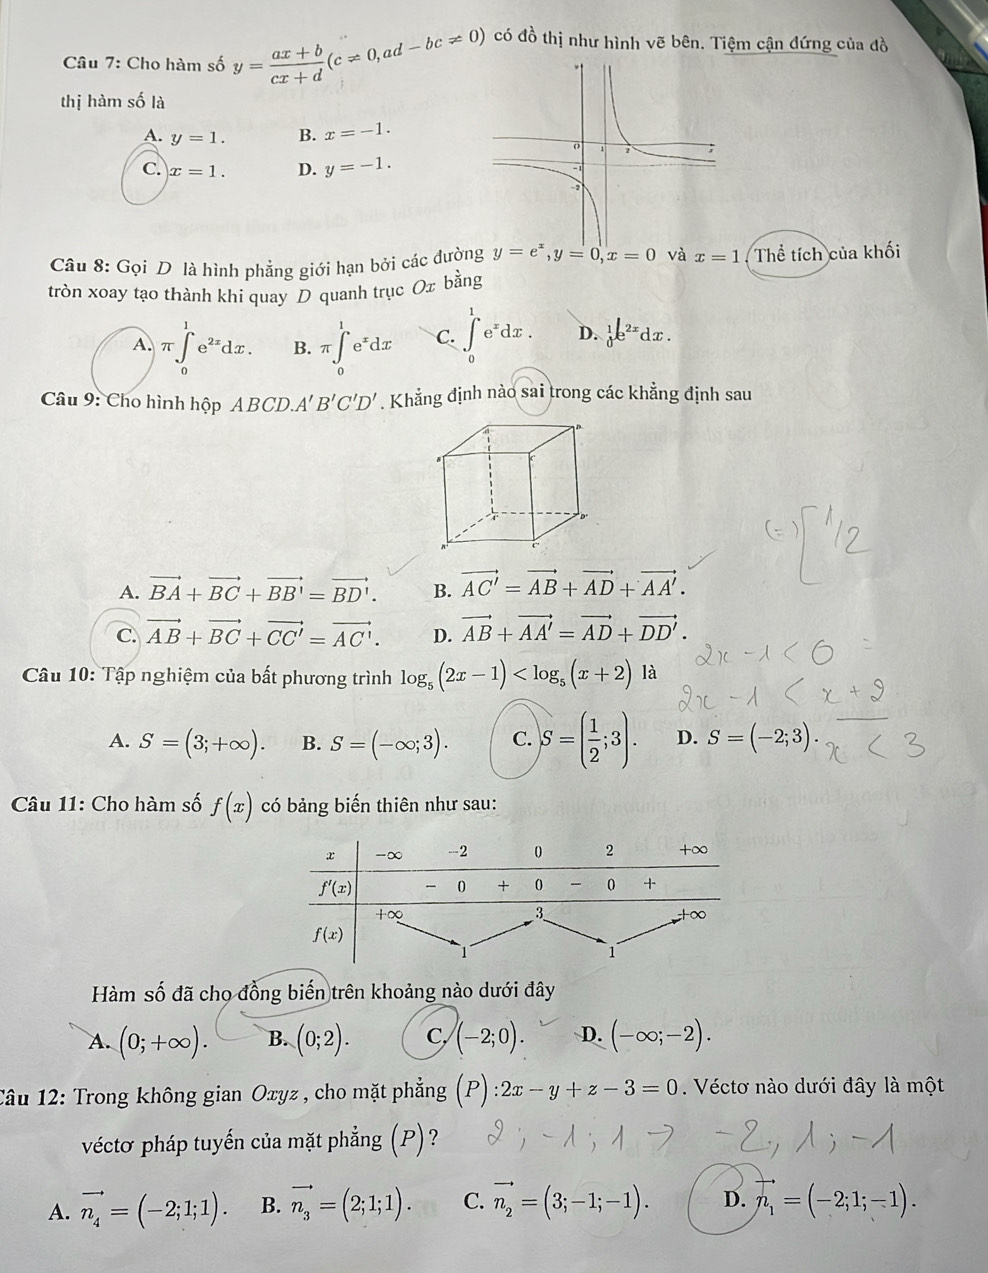 Câu 7: Cho hàm số y = (ax + b)/(cx + d) (c ≠ 0, ad − bc ≠ 0) có đồ thị như hình vẽ bên. Tiệm cận đứng của đồ
thị hàm số là
A. y = 1. B. x = −1.
C. x = 1. D. y = −1.
0 1 2 x
−1
−2
Câu 8: Gọi D là hình phẳng giới hạn bởi các đường y = e^x, y = 0, x = 0 và x = 1. Thể tích của khối
tròn xoay tạo thành khi quay D quanh trục Ox bằng
A. π∫₀¹ e^{2x}dx. B. π∫₀¹ e^x dx C. ∫₀¹ e^x dx. D. ∫₀¹ e^{2x}dx.
Câu 9: Cho hình hộp ABCD.A'B'C'D'. Khẳng định nào sai trong các khẳng định sau
A D
B C
A' D'
B' C'
(=) [ 1/2
A. →BA + →BC + →BB' = →BD'. B. →AC' = →AB + →AD + →AA'.
C. →AB + →BC + →CC' = →AC'. D. →AB + →AA' = →AD + →DD'.
2x − 1 < 0
Câu 10: Tập nghiệm của bất phương trình log₅(2x − 1) < log₅(x + 2) là
2x − 1 < x + 2
A. S = (3; +∞). B. S = (−∞; 3). C. S = (1/2; 3). D. S = (−2; 3).
x < 3
Câu 11: Cho hàm số f(x) có bảng biến thiên như sau:
x −∞ −2 0 2 +∞
f'(x) − 0 + 0 − 0 +
+∞ 3 +∞
f(x)
1 1
Hàm số đã cho đồng biến trên khoảng nào dưới đây
A. (0; +∞). B. (0; 2). C. (−2; 0). D. (−∞; −2).
Câu 12: Trong không gian Oxyz, cho mặt phẳng (P): 2x − y + z − 3 = 0. Véctơ nào dưới đây là một
véctơ pháp tuyến của mặt phẳng (P)?
2; −1; 1 → −2; 1; −1
A. →n₄ = (−2; 1; 1). B. →n₃ = (2; 1; 1). C. →n₂ = (3; −1; −1). D. →n₁ = (−2; 1; −1).